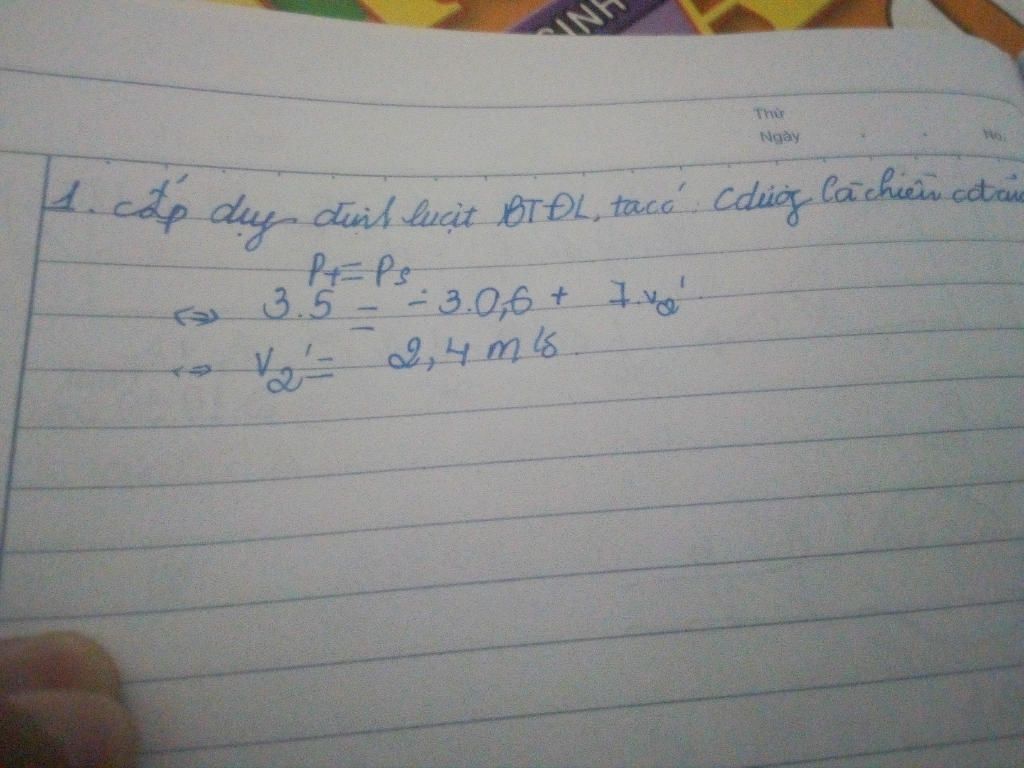 SINH
Thứ
Ngày . . No.
1. Áp dụng định luật BTĐL, ta có: C dương là chiều cđ
Pt = Ps
<=> 3.5 = - 3.0,6 + 7.v2'
<=> v2' = 2,4 m/s